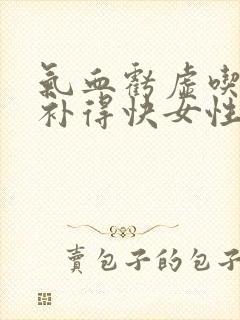 氣血虧虛喫
补得快女性
賣包子的包子